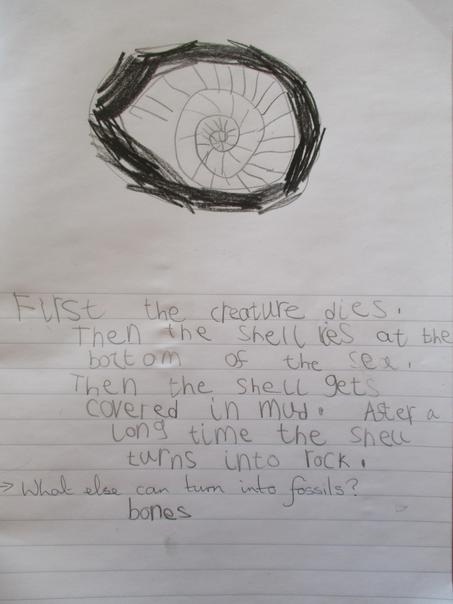 First the creature dies.
Then the shell lies at the
bottom of the sea.
Then the shell gets
covered in mud. After a
long time the shell
turns into rock.
→ What else can turn into fossils?
bones